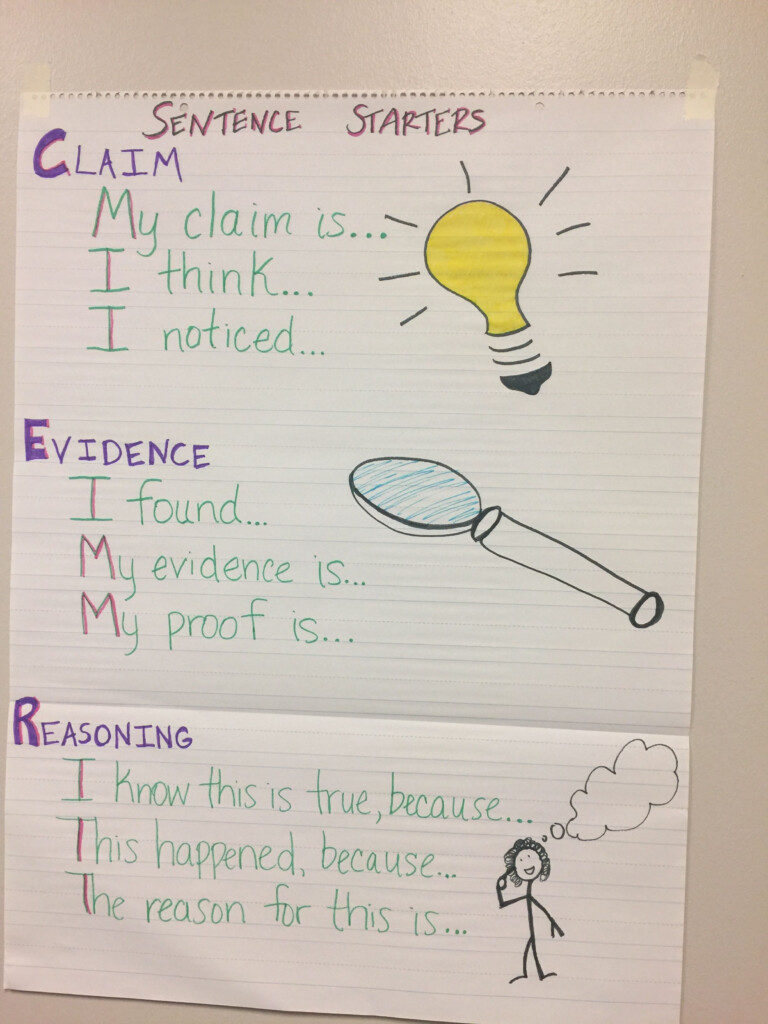 SENTENCE STARTERS
CLAIM
My claim is...
I think...
I noticed...
EVIDENCE
I found...
My evidence is...
My proof is...
REASONING
I know this is true, because...
This happened, because...
The reason for this is...